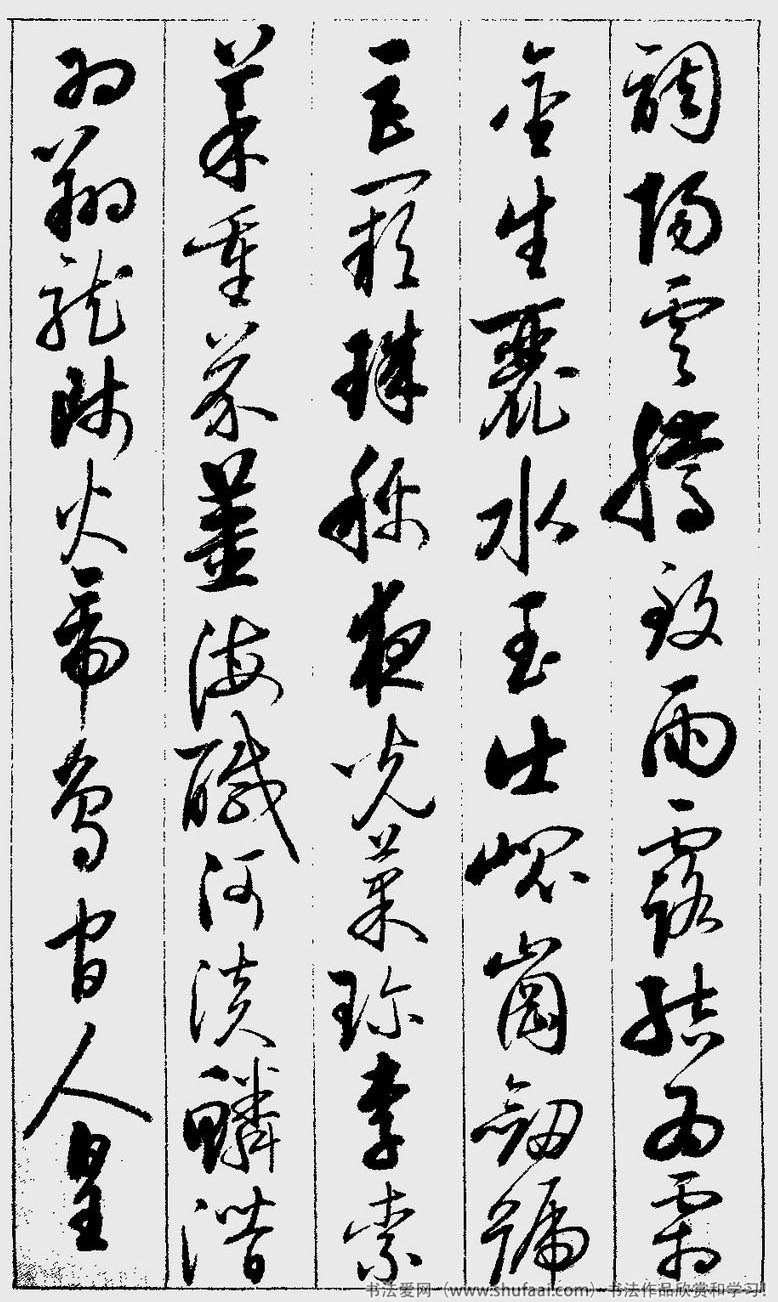 調陽雲騰致雨露結為霜
金生麗水玉出崐崗劒號
巨闕珠稱夜光菓珍李柰
菜重芥薑海醎河淡鱗潛
羽翔龍師火帝鳥官人皇
书法爱网（www.shufaai.com）-书法作品欣赏和学习!